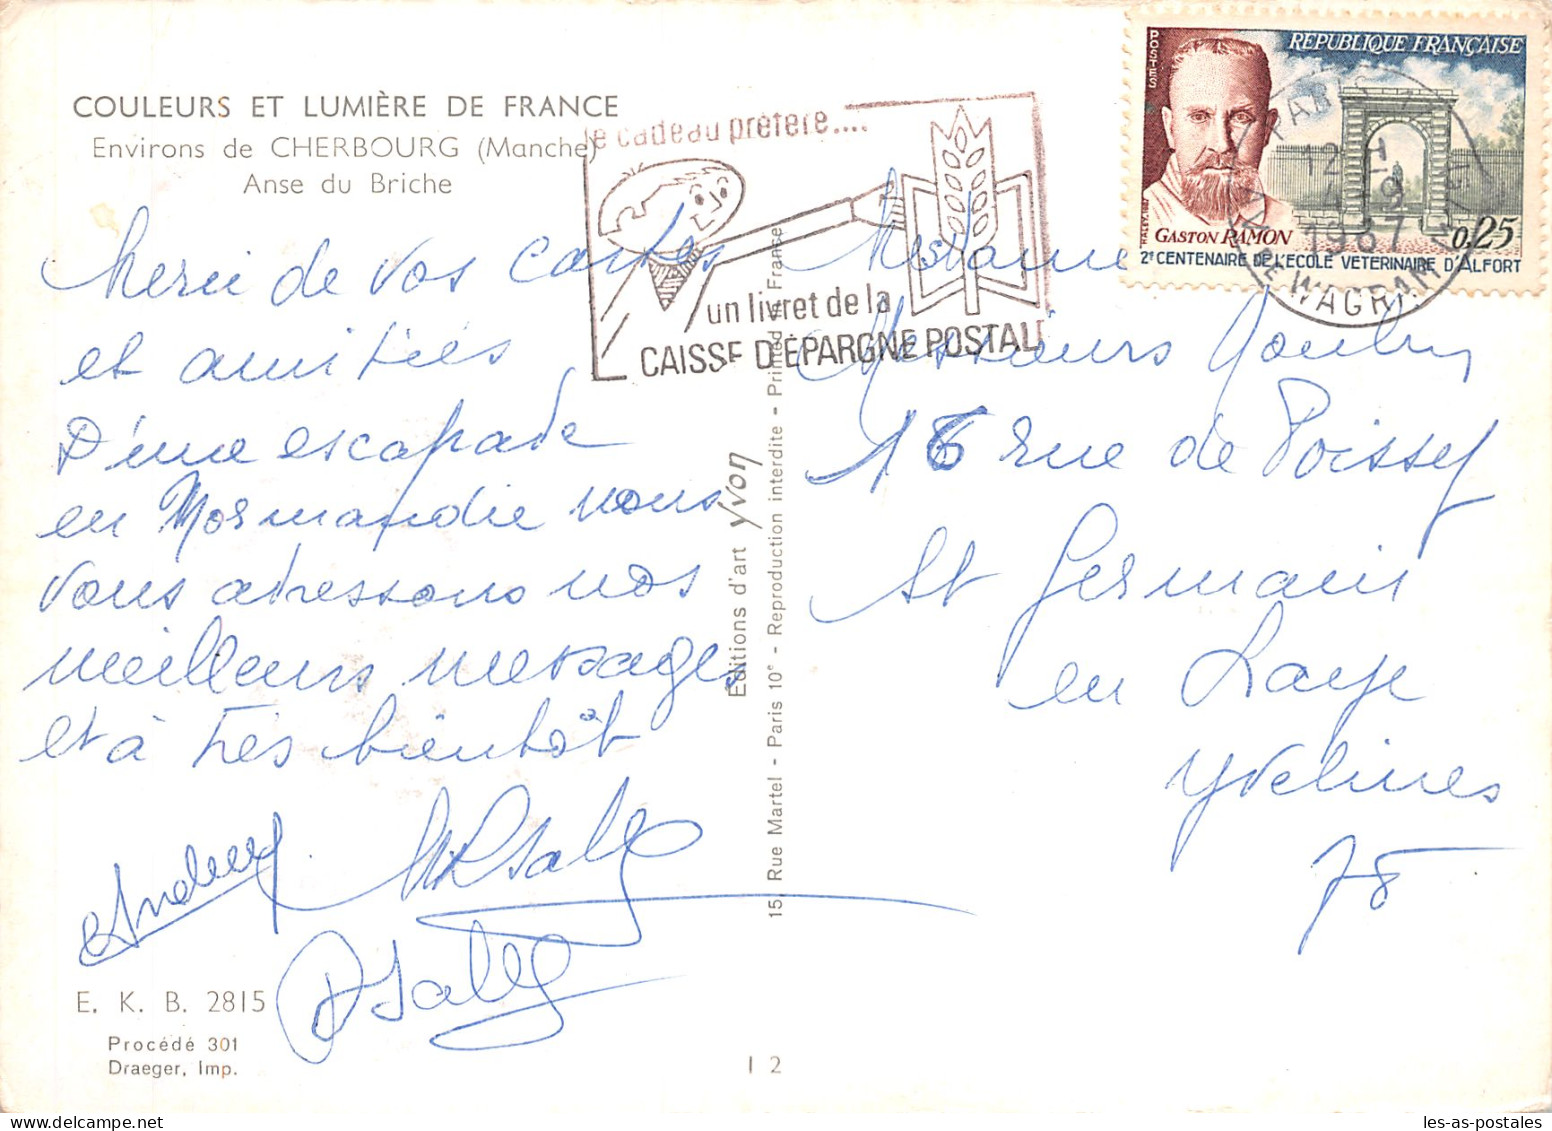 COULEURS ET LUMIÈRE DE FRANCE
Environs de CHERBOURG (Manche)
Anse du Briche
le cadeau préféré....
un livret de la
CAISSE D'ÉPARGNE POSTALE
POSTES
REPUBLIQUE FRANÇAISE
GASTON RAMON
0,25
2e CENTENAIRE DE L'ECOLE VETERINAIRE D'ALFORT
PARIS
12 H
4 - 9
1967
WAGRAM
Merci de vos cartes
et amitiés
D'une escapade
en Normandie nous
vous adressons nos
meilleurs messages
et à très bientôt
E. K. B. 2815
Procédé 301
Draeger, Imp.
Editions d'art Yvon
15, Rue Martel - Paris 10e - Reproduction interdite - Printed in France
I 2
Madame
Messieurs
16 rue de Poissy
St Germain
en Laye
Yvelines
78
les-as-postales